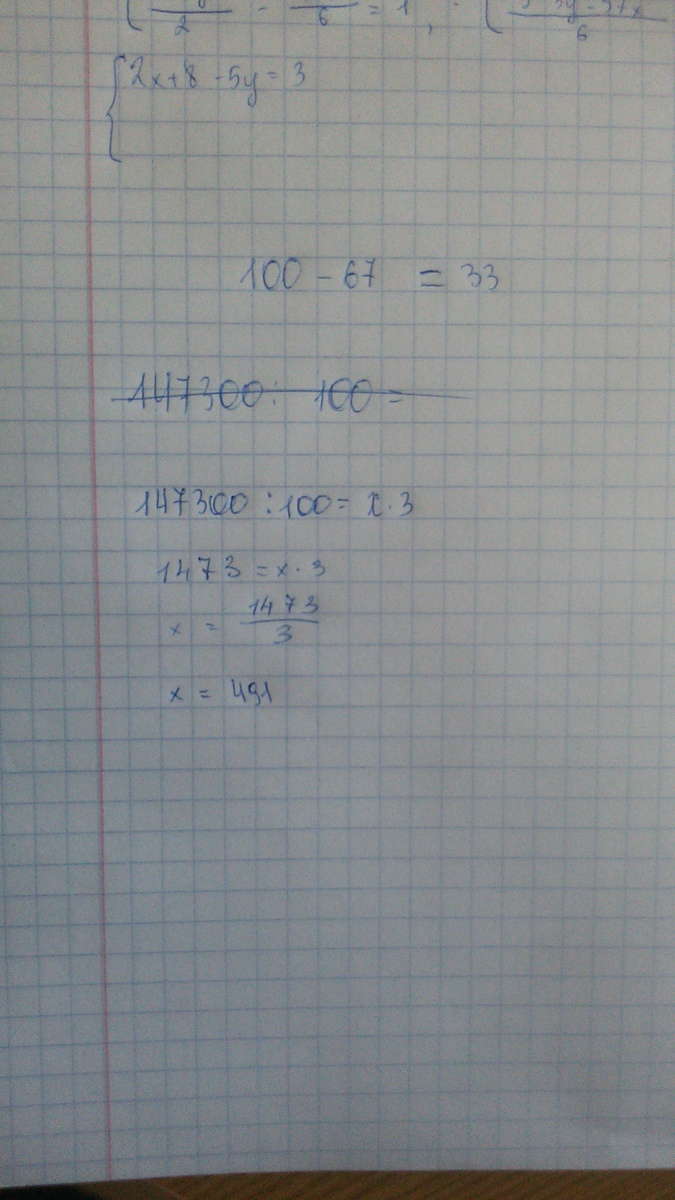 2 - 6 = 1, 6
2x+8-5y=3
100-67 = 33
147300: 100=
147300:100= x·3
1473=x·3
x = 1473/3
x = 491